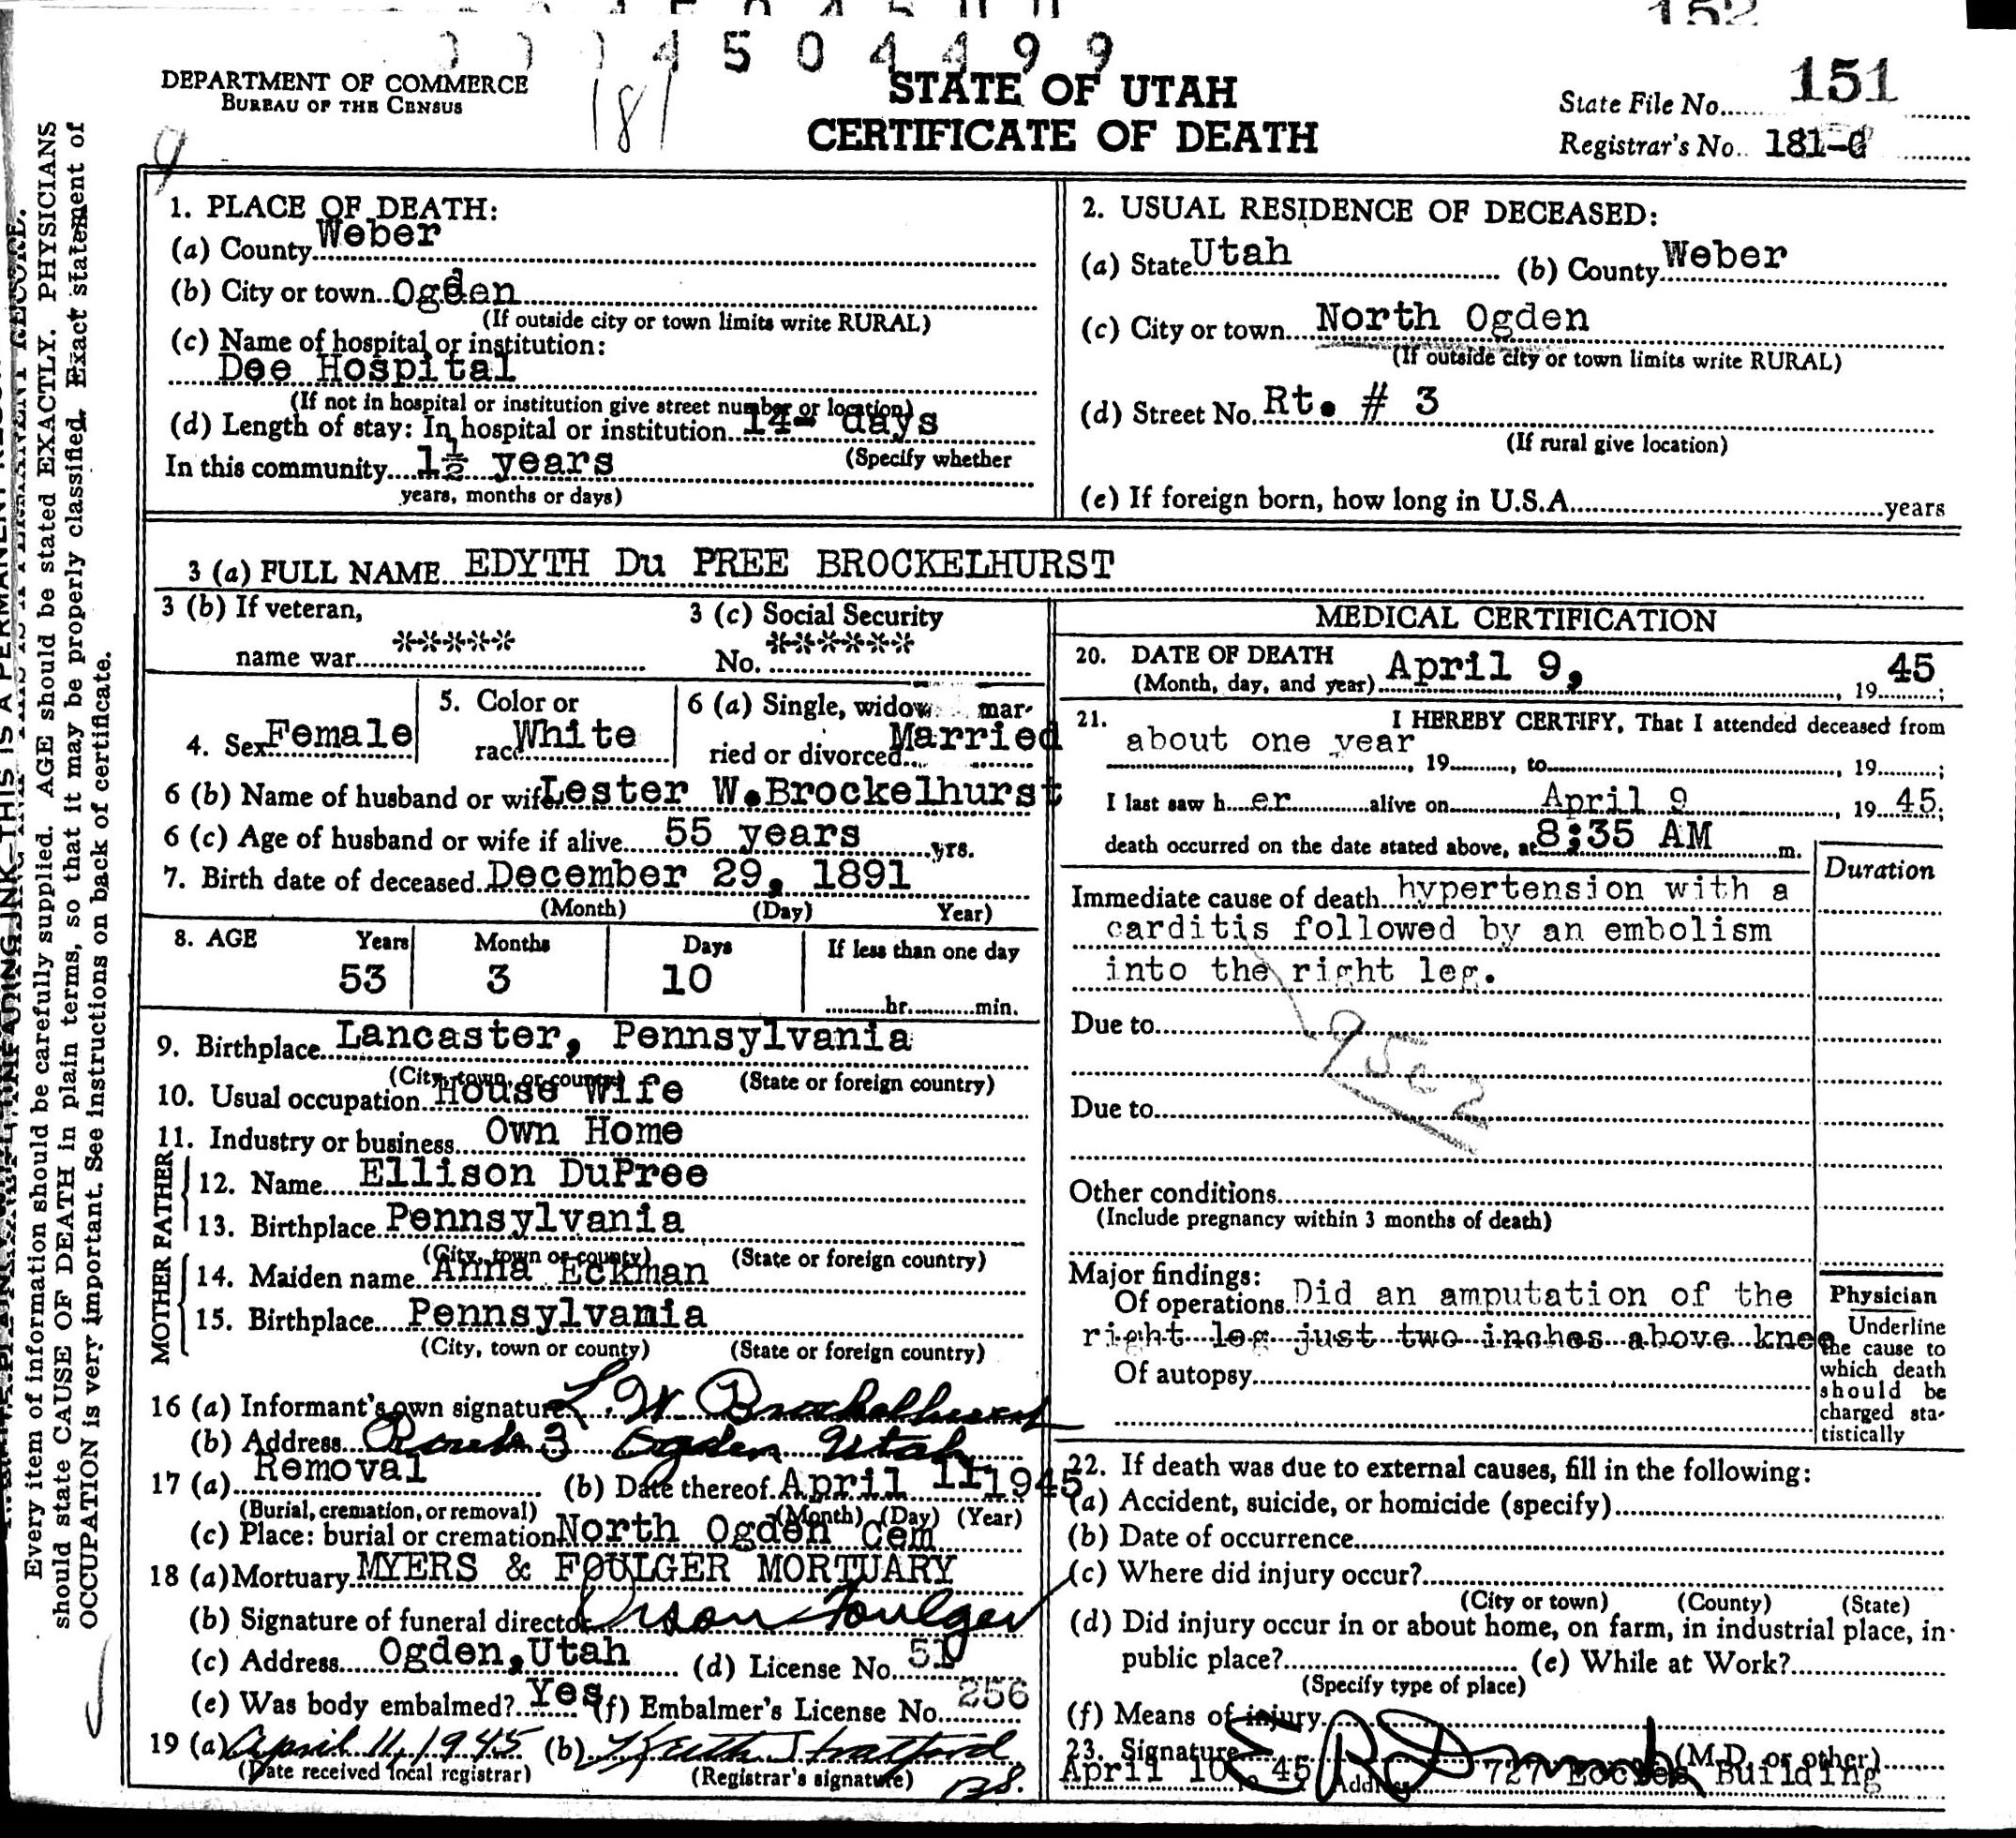 4 5 0 4 4 9 9
152
DEPARTMENT OF COMMERCE
BUREAU OF THE CENSUS
181
STATE OF UTAH
CERTIFICATE OF DEATH
State File No. 151
Registrar's No. 181-C
9
Every item of information should be carefully supplied. AGE should be stated EXACTLY. PHYSICIANS
should state CAUSE OF DEATH in plain terms, so that it may be properly classified. Exact statement of
OCCUPATION is very important. See instructions on back of certificate.
1. PLACE OF DEATH:
(a) County Weber
(b) City or town Ogden
(If outside city or town limits write RURAL)
(c) Name of hospital or institution:
Dee Hospital
(If not in hospital or institution give street number or location)
(d) Length of stay: In hospital or institution 14- days
In this community 1½ years (Specify whether
years, months or days)
2. USUAL RESIDENCE OF DECEASED:
(a) State Utah (b) County Weber
(c) City or town North Ogden
(If outside city or town limits write RURAL)
(d) Street No. Rt. # 3
(If rural give location)
(e) If foreign born, how long in U.S.A. years
3 (a) FULL NAME EDYTH Du PREE BROCKELHURST
3 (b) If veteran,
name war *****
3 (c) Social Security
No. ******
4. Sex Female
5. Color or
race White
6 (a) Single, widow mar-
ried or divorced Married
6 (b) Name of husband or wife Lester W.Brockelhurst
6 (c) Age of husband or wife if alive 55 years yrs.
7. Birth date of deceased December 29, 1891
(Month) (Day) Year)
8. AGE Years Months Days If less than one day
53 3 10 hr. min.
9. Birthplace Lancaster, Pennsylvania
(City, town, or county) (State or foreign country)
10. Usual occupation House Wife
11. Industry or business Own Home
FATHER
12. Name Ellison DuPree
13. Birthplace Pennsylvania
(City, town or county) (State or foreign country)
MOTHER
14. Maiden name Anna Eckman
15. Birthplace Pennsylvania
(City, town or county) (State or foreign country)
16 (a) Informant's own signature L. W. Brockelhurst
(b) Address Route 3 Ogden Utah
17 (a) Removal (b) Date thereof April 11 1945
(Burial, cremation, or removal) (Month) (Day) (Year)
(c) Place: burial or cremation North Ogden Cem
18 (a) Mortuary MYERS & FOULGER MORTUARY
(b) Signature of funeral director Orson Foulger
(c) Address Ogden, Utah (d) License No. 51
(e) Was body embalmed? Yes (f) Embalmer's License No. 256
19 (a) April 11, 1945 (b) Keith Stratford
(Date received local registrar) (Registrar's signature)
MEDICAL CERTIFICATION
20. DATE OF DEATH April 9, 45
(Month, day, and year) , 19 ;
21. I HEREBY CERTIFY, That I attended deceased from
about one year , 19 , to , 19 ;
I last saw h er alive on April 9 , 19 45;
death occurred on the date stated above, at 8:35 AM m.
Duration
Immediate cause of death hypertension with a
carditis followed by an embolism
into the right leg.
Due to
Due to
Other conditions
(Include pregnancy within 3 months of death)
Major findings:
Of operations Did an amputation of the
right leg just two inches above knee
Of autopsy
Physician
Underline
the cause to
which death
should be
charged sta-
tistically
22. If death was due to external causes, fill in the following:
(a) Accident, suicide, or homicide (specify)
(b) Date of occurrence
(c) Where did injury occur?
(City or town) (County) (State)
(d) Did injury occur in or about home, on farm, in industrial place, in
public place? (e) While at Work?
(Specify type of place)
(f) Means of injury
23. Signature (M.D. or other)
April 10, 45 Address 727 Eccles Building